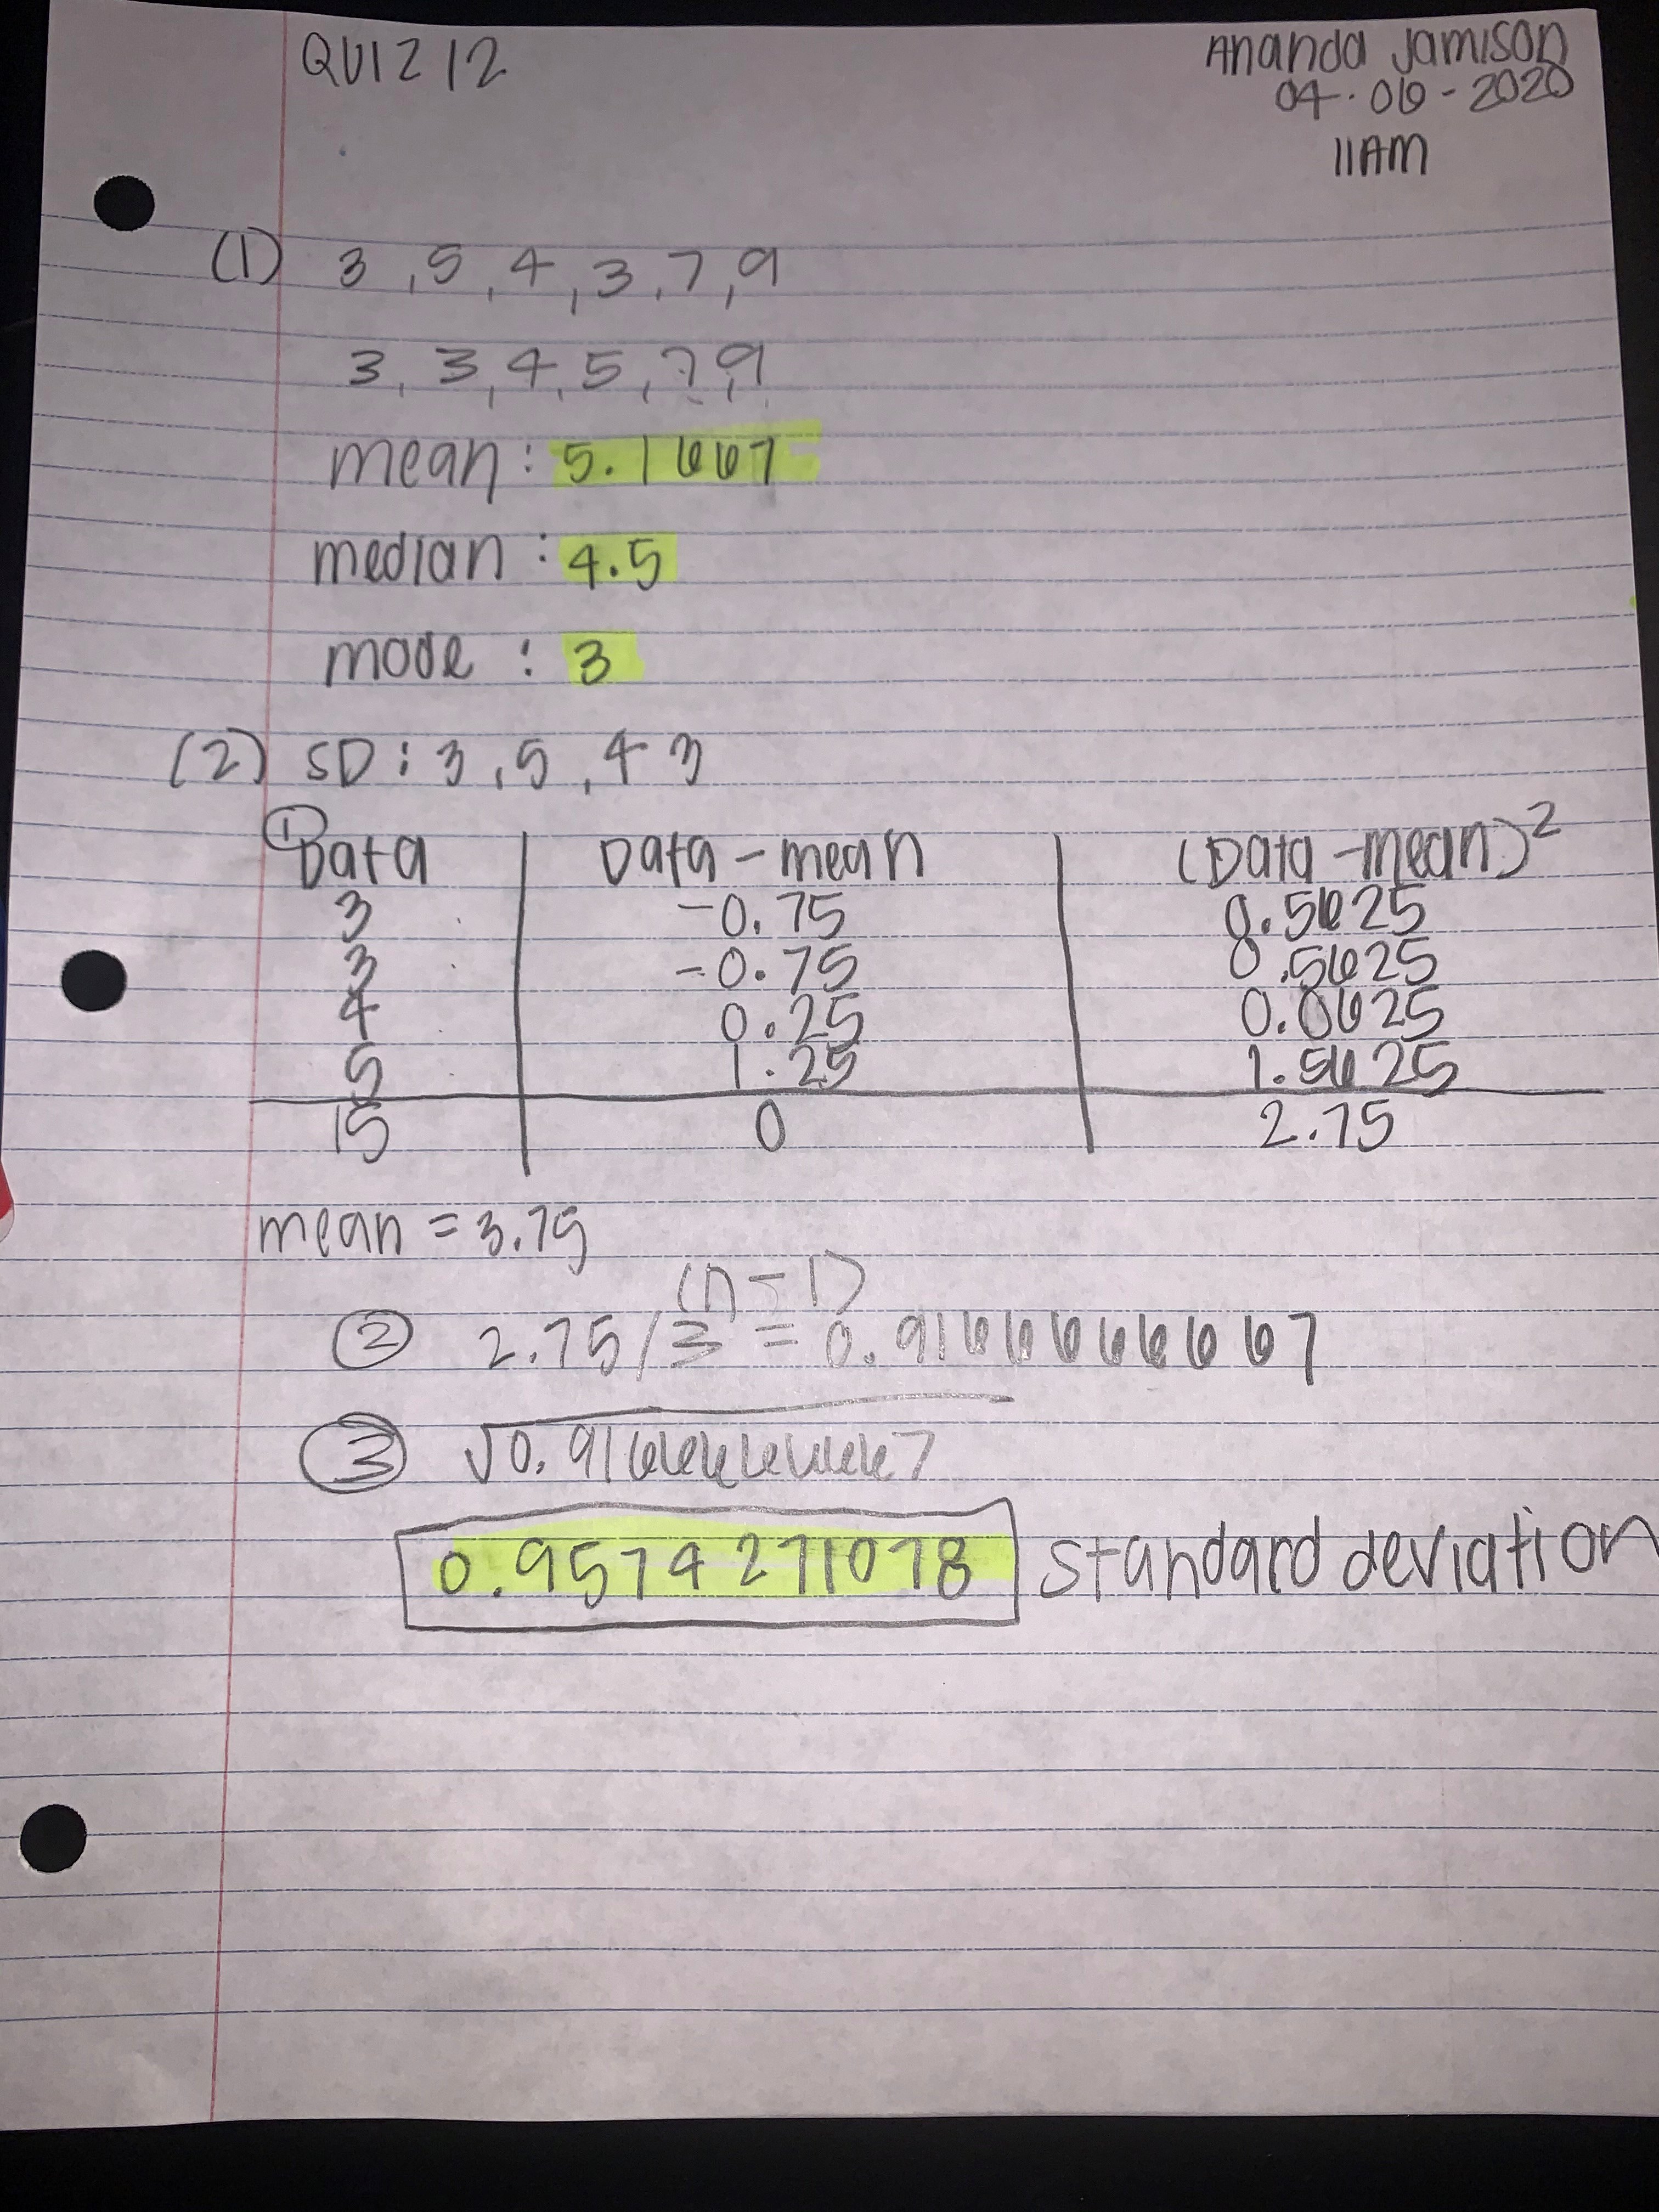 QUIZ 12
Ananda Jamison
04-06-2020
11AM
(1) 3, 5, 4, 3, 7, 9
3, 3, 4, 5, 7, 9
mean: 5.1667
median: 4.5
mode: 3
(2) SD: 3, 5, 4 3
① Data | Data - mean | (Data - mean)²
3 | -0.75 | 0.5625
3 | -0.75 | 0.5625
4 | 0.25 | 0.0625
5 | 1.25 | 1.5625
15 | 0 | 2.75
mean = 3.75
(n-1)
② 2.75/3 = 0.9166666667
③ √0.9166666667
0.9574271078 standard deviation